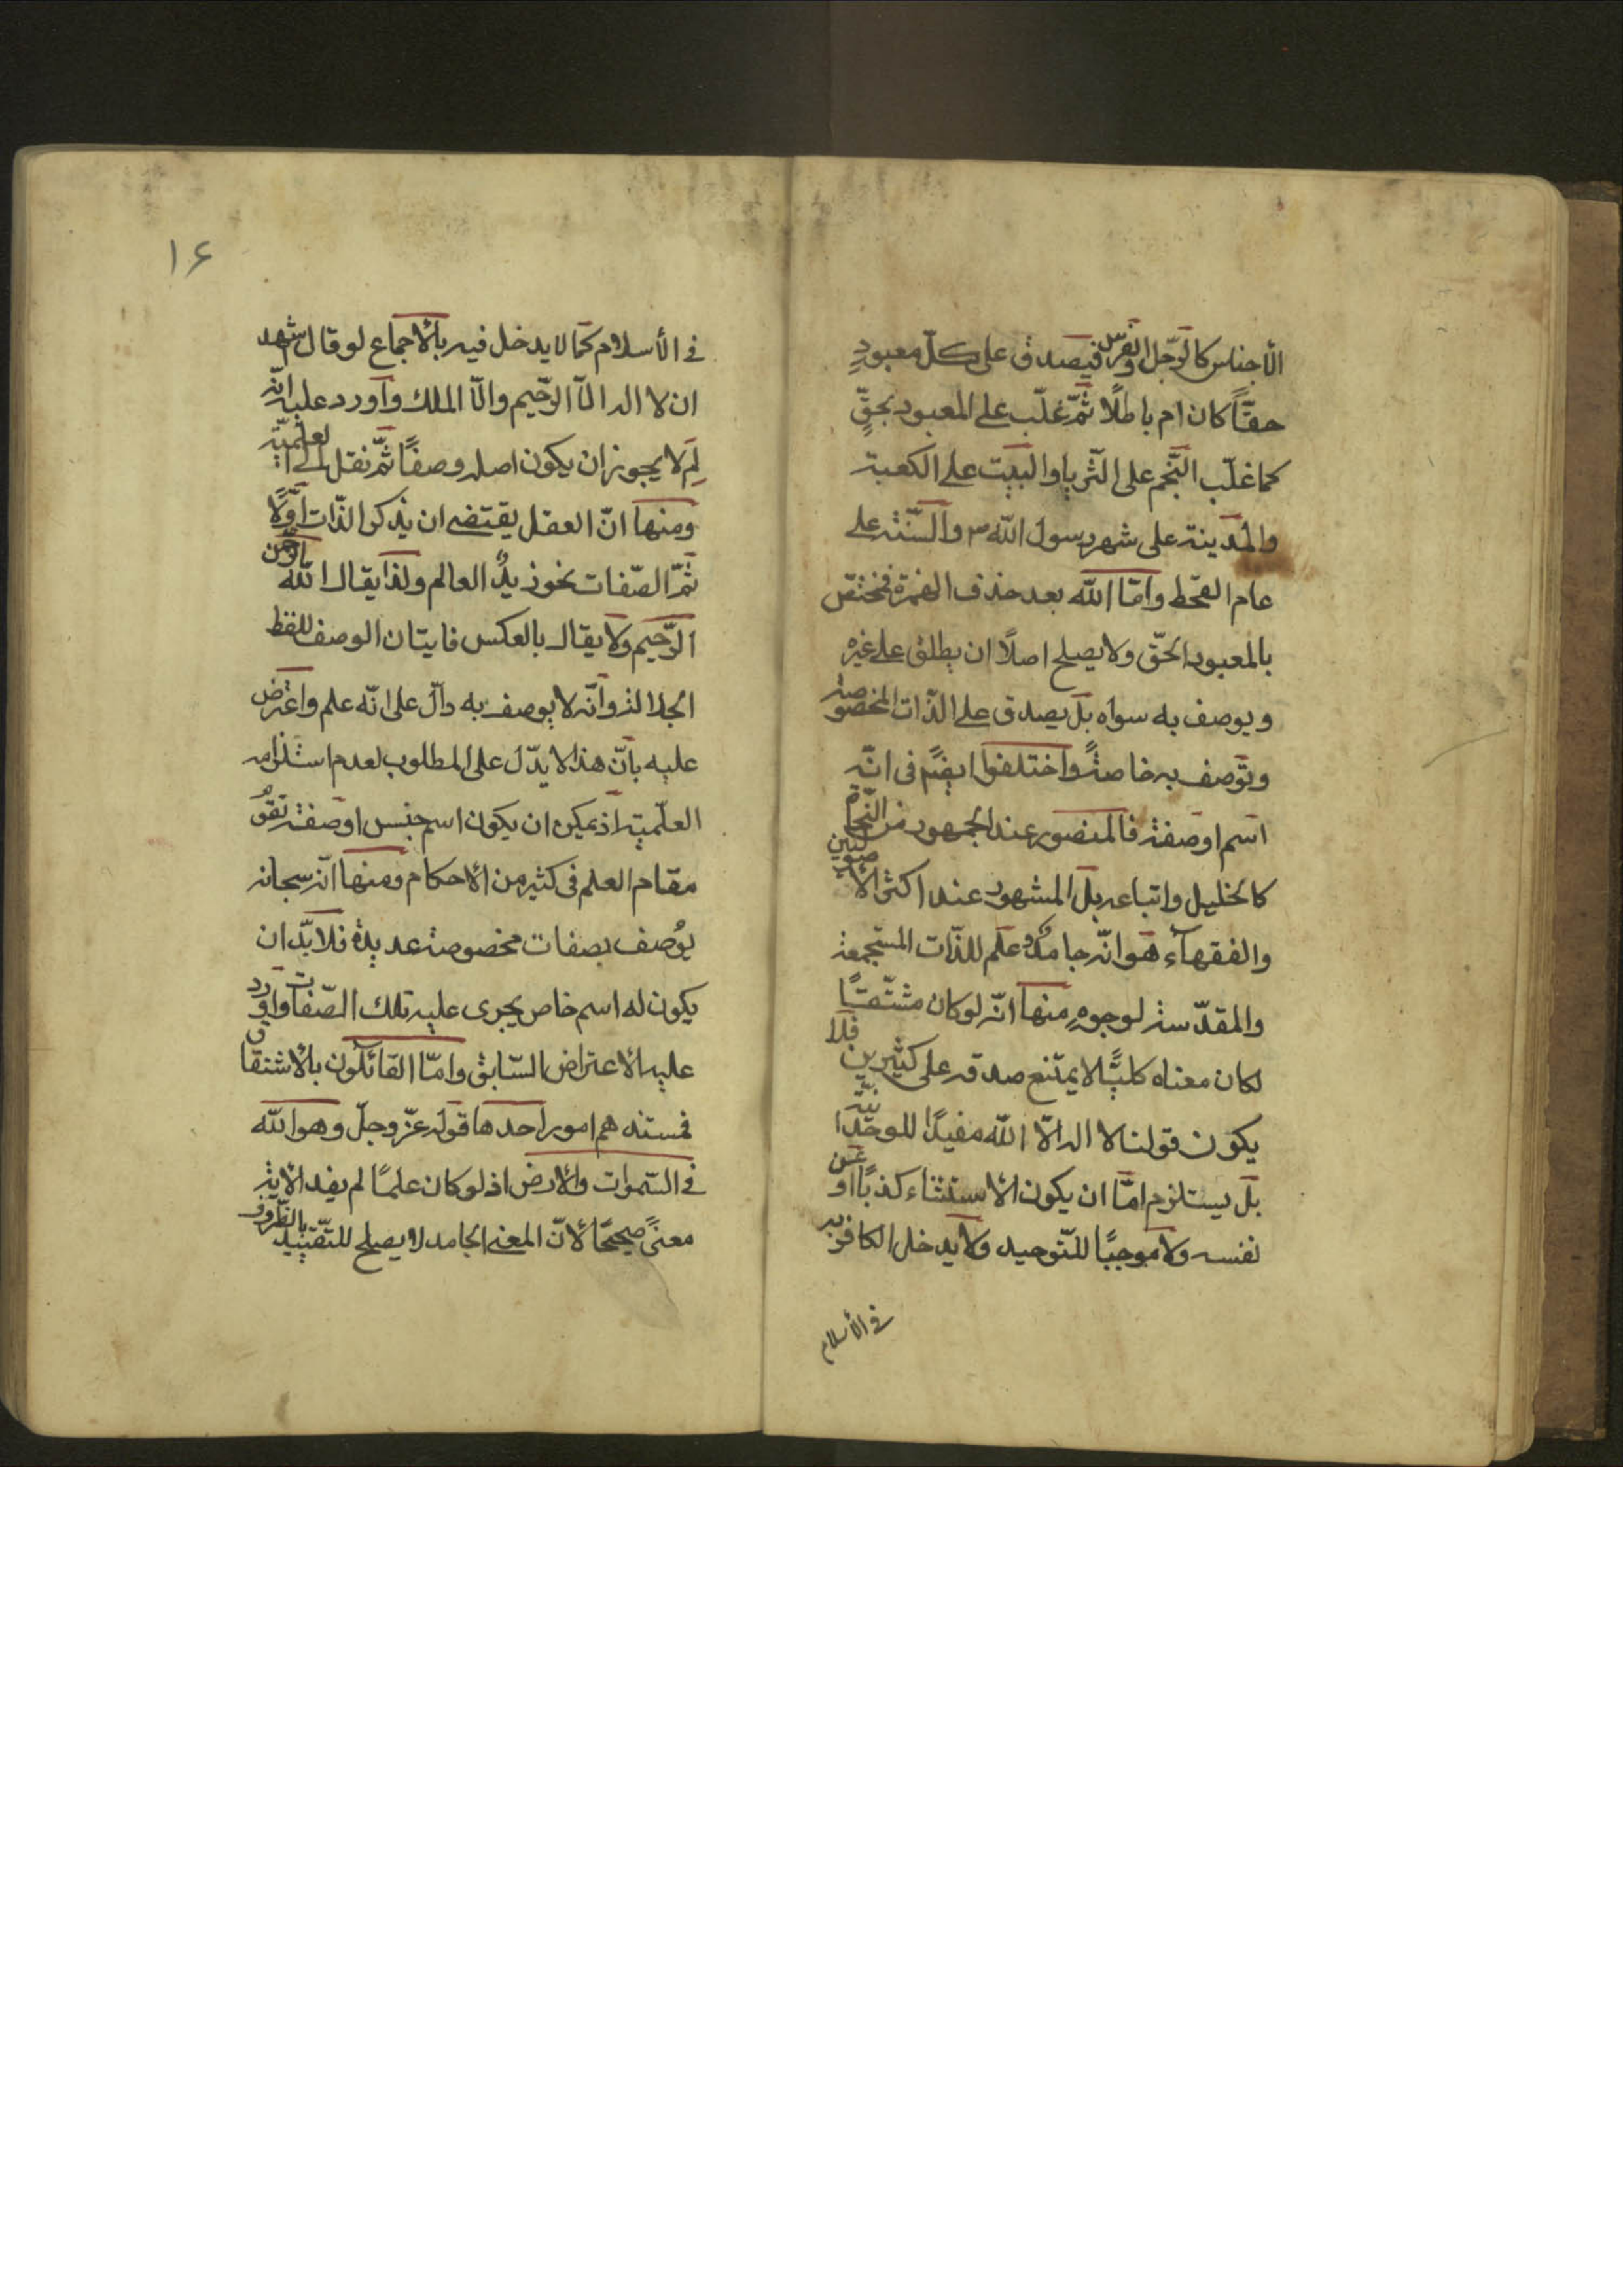 الأجناس كالرّجل والفرس فيصدق على كلّ معبودٍ
حقّاً كان ام باطلًا ثمّ غلّب على المعبود بحقٍّ
كما غلّب النّجم على الثّريا والبيت على الكعبة
والمدينة على شهر رسول اللّه ص والسّنة على
عام القحط وامّا اللّه بعد حذف الهمزة فمختصّ
بالمعبود الحقّ ولا يصلح اصلًا ان يطلق على غيره
ويوصف به سواه بل يصدق على الذّات المخصوصة
ويوصف به خاصةً واختلفوا ايضًا فى انّه
اسم او صفة فالمنصور عند الجمهور من النّحاة
كالخليل واتباعه بل المشهور عند اكثر الأصوليين
والفقهآء هو انّه جامدٌ وعلم للذّات المستجمعة
والمقدّسة لوجوهٍ منها انّه لو كان مشتّقًا
لكان معناه كليًّا لا يمتنع صدقه على كثيرين فلا
يكون قولنا لا اله الّا اللّه مفيدًا للوحدانيّة
بل يستلزم امّا ان يكون الاستثناء كذبًا او عن
نفسه ولا موجبًا للتّوحيد ولا يدخل الكافر به
في الأسلام
١۶
فى الأسلام كما لا يدخل فيه بالأجماع لو قال اشهد
ان لا اله الّا الرّحيم والّا الملك واورد عليه انّه
لِمَ لا يجوز ان يكون اصله وصفًا ثمّ نقل الى العلميّة
ومنها انّ العقل يقتضى ان يذكر الذّات اوّلًا
ثمّ الصّفات نحو زيدٌ العالم ولذا يقال اللّه الرّحمن
الرّحيم ولا يقال بالعكس فايتان الوصف للفظ
الجلالة وانّه لا يوصف به دالّ على انّه علم واعترض
عليه بانّ هذا لا يدّل على المطلوب لعدم استلزامه
العلّمية اذ يمكن ان يكون اسم جنس او صفة تقوُم
مقام العلم فى كثير من الأحكام ومنها انّه سبحانه
يوُصف بصفات مخصوصة عديدة فلا بدّ ان
يكون له اسم خاص يجرى عليه تلك الصّفات واورد
عليه الأعتراض السّابق وامّا القائلون بالأشتقاق
فمستندهم امور احدها قوله عزّ وجلّ وهو اللّه
فى السّموات والأرض اذ لو كان علمًا لم يفد الآية
معنىً صحيحًا لأنّ المعنى الجامد لا يصلح للتّقييد بالظّروف